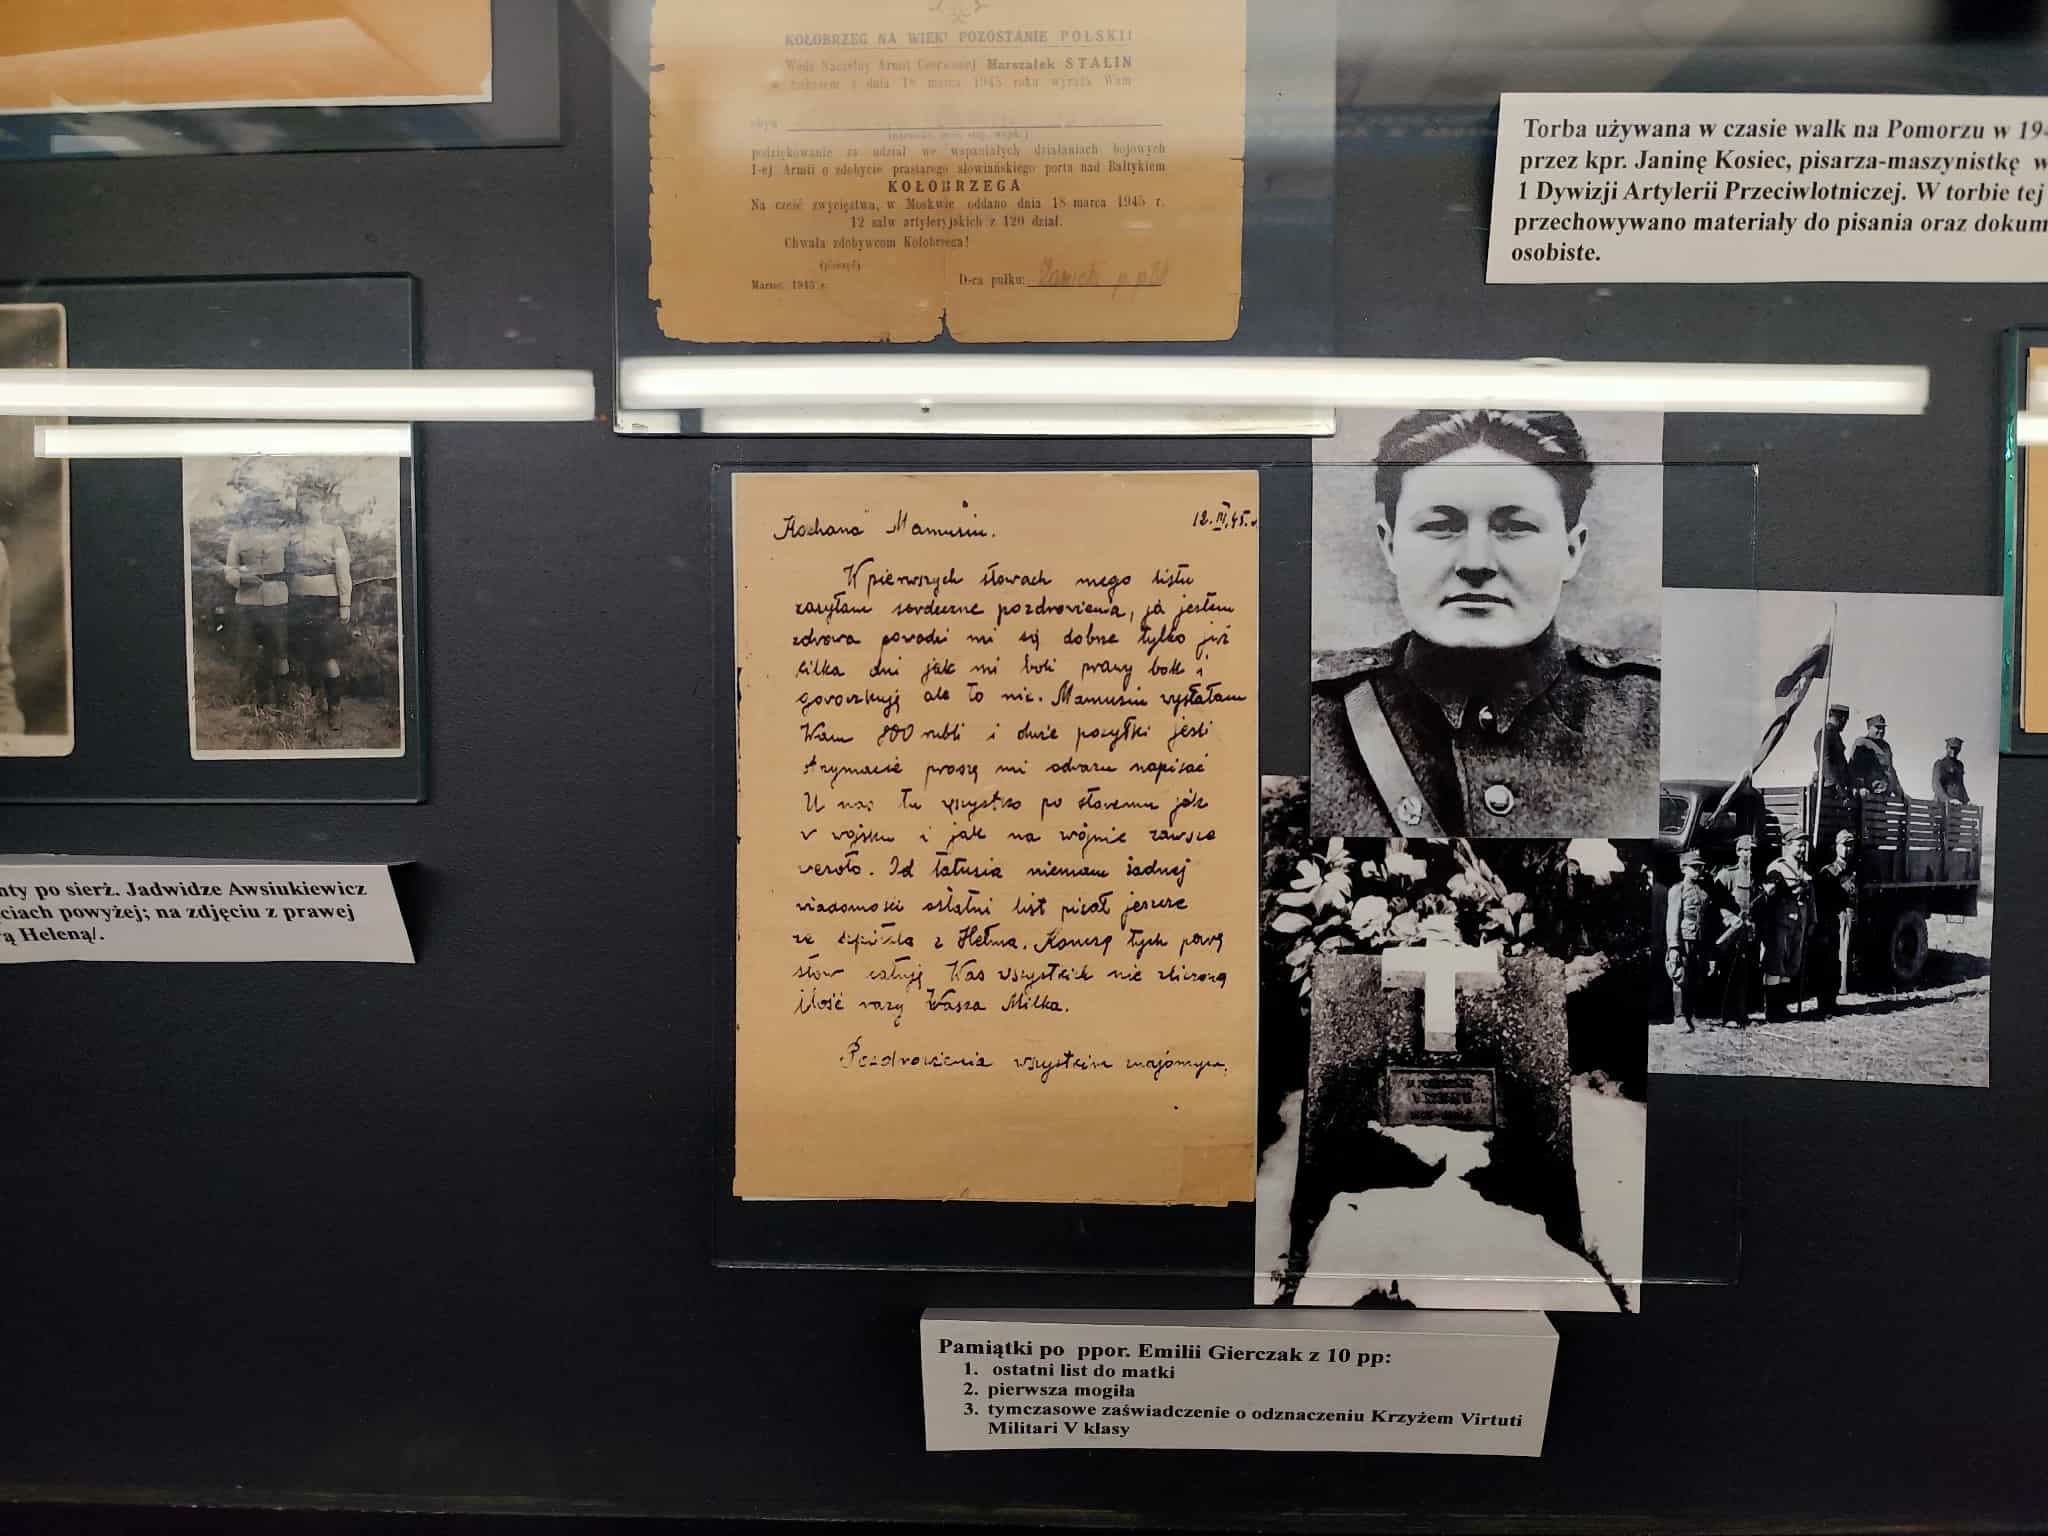 KOŁOBRZEG NA WIEKI POZOSTANIE POLSKI!
Wódz Naczelny Armii Czerwonej Marszałek STALIN
w rozkazie z dnia 18 marca 1945 roku wyraża Wam
obyw.
podziękowanie za udział we wspaniałych działaniach bojowych
I-ej Armii o zdobycie prastarego słowiańskiego portu nad Bałtykiem
KOŁOBRZEGA
Na cześć zwycięstwa, w Moskwie oddano dnia 18 marca 1945 r.
12 salw artyleryjskich z 120 dział.
Chwała zdobywcom Kołobrzega!
(pieczęć)
Marzec 1945 r.
D-ca pułku:
Torba używana w czasie walk na Pomorzu w 194
przez kpr. Janinę Kosiec, pisarza-maszynistkę w
1 Dywizji Artylerii Przeciwlotniczej. W torbie tej
przechowywano materiały do pisania oraz dokum
osobiste.
nty po sierż. Jadwidze Awsiukiewicz
ciach powyżej; na zdjęciu z prawej
rą Heleną/.
12.III.45.r
Kochana Mamusiu.
W pierwszych słowach mego listu
zasyłam serdeczne pozdrowienia, ja jestem
zdrowa powodzi mi się dobrze tylko już
kilka dni jak mi boli prawy bok i
gorączkuję ale to nic. Mamusiu wysłałam
Wam 800 rubli i duże paczki jeśli
otrzymacie proszę mi odrazu napisać
U nas tu wszystko po staremu jak
w wojsku i jak na wojnie zawsze
wesoło. Od tatusia niemam żadnej
wiadomości ostatni list pisał jeszcze
ze szpitala z Hełma. Kończę tych parę
słów całuję Was wszystkich nie zliczoną
ilość razy Wasza Milka.
Pozdrowienia wszystkim znajomym.
Pamiątki po ppor. Emilii Gierczak z 10 pp:
1. ostatni list do matki
2. pierwsza mogiła
3. tymczasowe zaświadczenie o odznaczeniu Krzyżem Virtuti
Militari V klasy